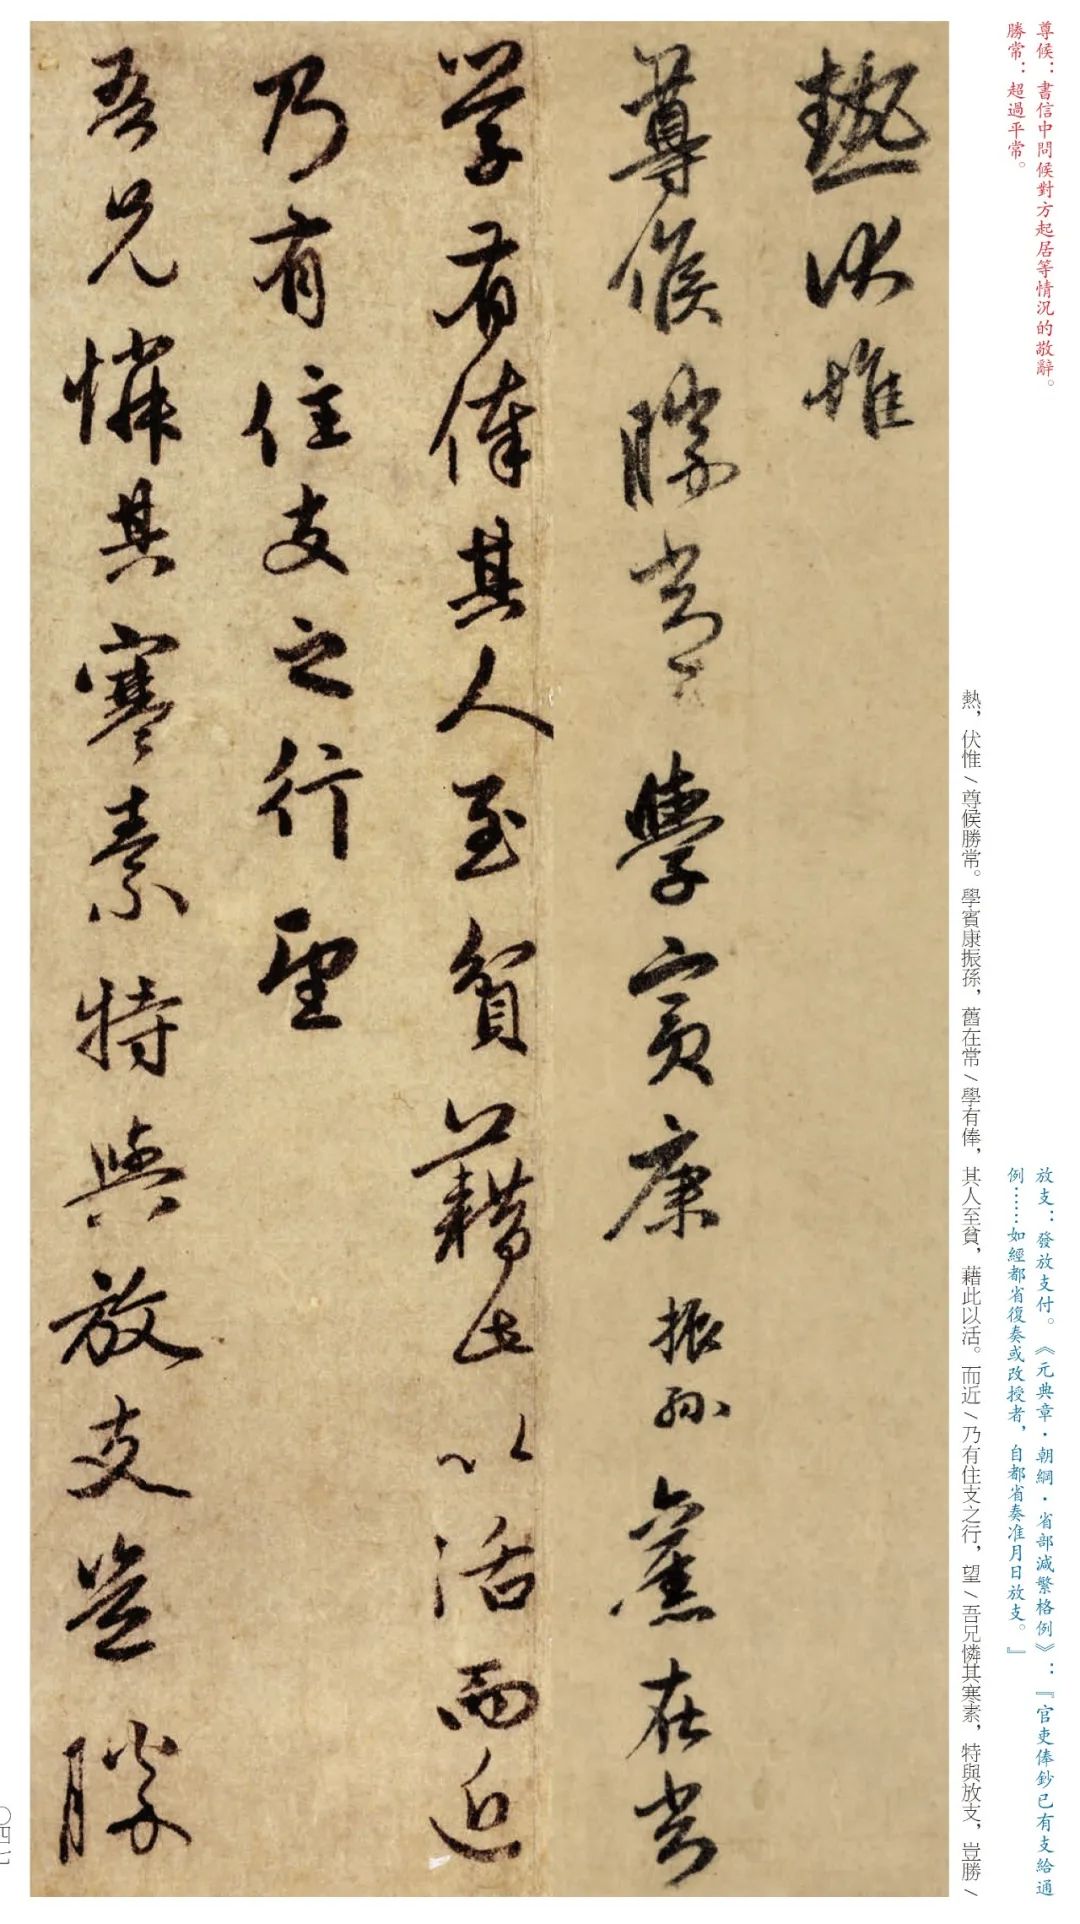 尊候：書信中問候對方起居等情況的敬辭。
勝常：超過平常。
放支：發放支付。《元典章·朝綱·省部減繁格例》：『官吏俸鈔已有支給通
例……如經都省復奏或改授者，自都省奏准月日放支。』
熱，伏惟／尊候勝常。學賓康振孫，舊在常／學有俸，其人至貧，藉此以活。而近／乃有住支之行，望／吾兄憐其寒素，特與放支，豈勝／
熱伏惟
尊候勝常學賓康振孫舊在常
學有俸其人至貧藉此以活而近
乃有住支之行望
吾兄憐其寒素特與放支豈勝
〇四七